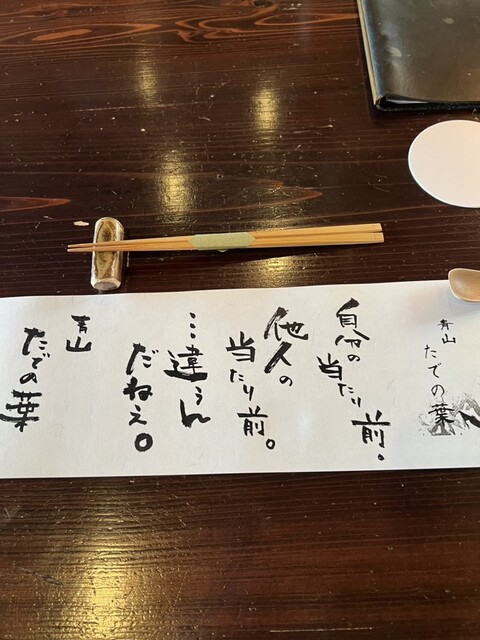 青山
たでの葉
自分の
当たり
前.
他人の
当たり
前。
…違うん
だねえ。
青山
たでの葉